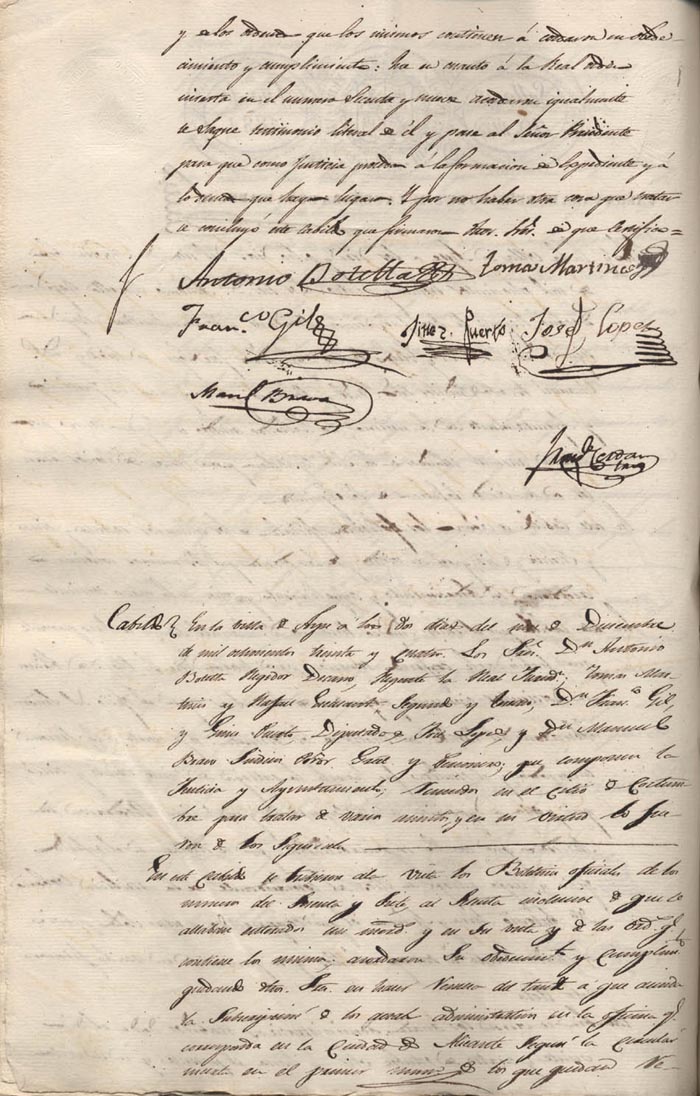 y de los demas que los mismos contienen á acordaron su obede-
cimiento y cumplimiento: ha en cuanto á la Real orden
inserta en el numero treinta y nueve acordaron igualmente
se saque testimonio literal de él y pase al Señor Presidente
para que como Justicia proceda á la formacion de Expediente y á
lo demas que haya lugar. Y por no haber otra cosa que tratar
se concluyó este cabildo que firmaron dhos. Sres. de que certifico=
Antonio Botella Tomas Martinez
Fran.co Gil Ginez Puerto José Lopez
Man.l Bravo
Cabildo En la villa de Aspe a los dos dias del mes de Diciembre
de mil ochocientos treinta y cuatro. Los Sres. Dn Antonio
Botella Regidor Decano, Regente la Real Jurisdn. Tomas Mar-
tinez y Segundo y Dn Fran.co Gil,
y Gines Puerto, Diputados, José Lopez, y Dn Manuel
Bravo Sindico Pror. Gral. y que componen la
Justicia y Ayuntamiento; Reunidos en el citio de Costum
bre para tratar de varios asuntos, y en su virtud lo hicie
ron de los siguientes
En este Cabildo se hicieron de vista los Boletines oficiales de los
numeros del treinta y siete al inclusive de que
enterados sus mercd. y en su vista y de las Ords. qe
contiene los mismos; acordaron su obedecimto y cumplimto
quedando dhos. Sres. en hacer
la de los administracion en la oficina qe
corresponda en la Ciudad de Alicante segun la circular
inserta en el primer numo de los que quedan Re-